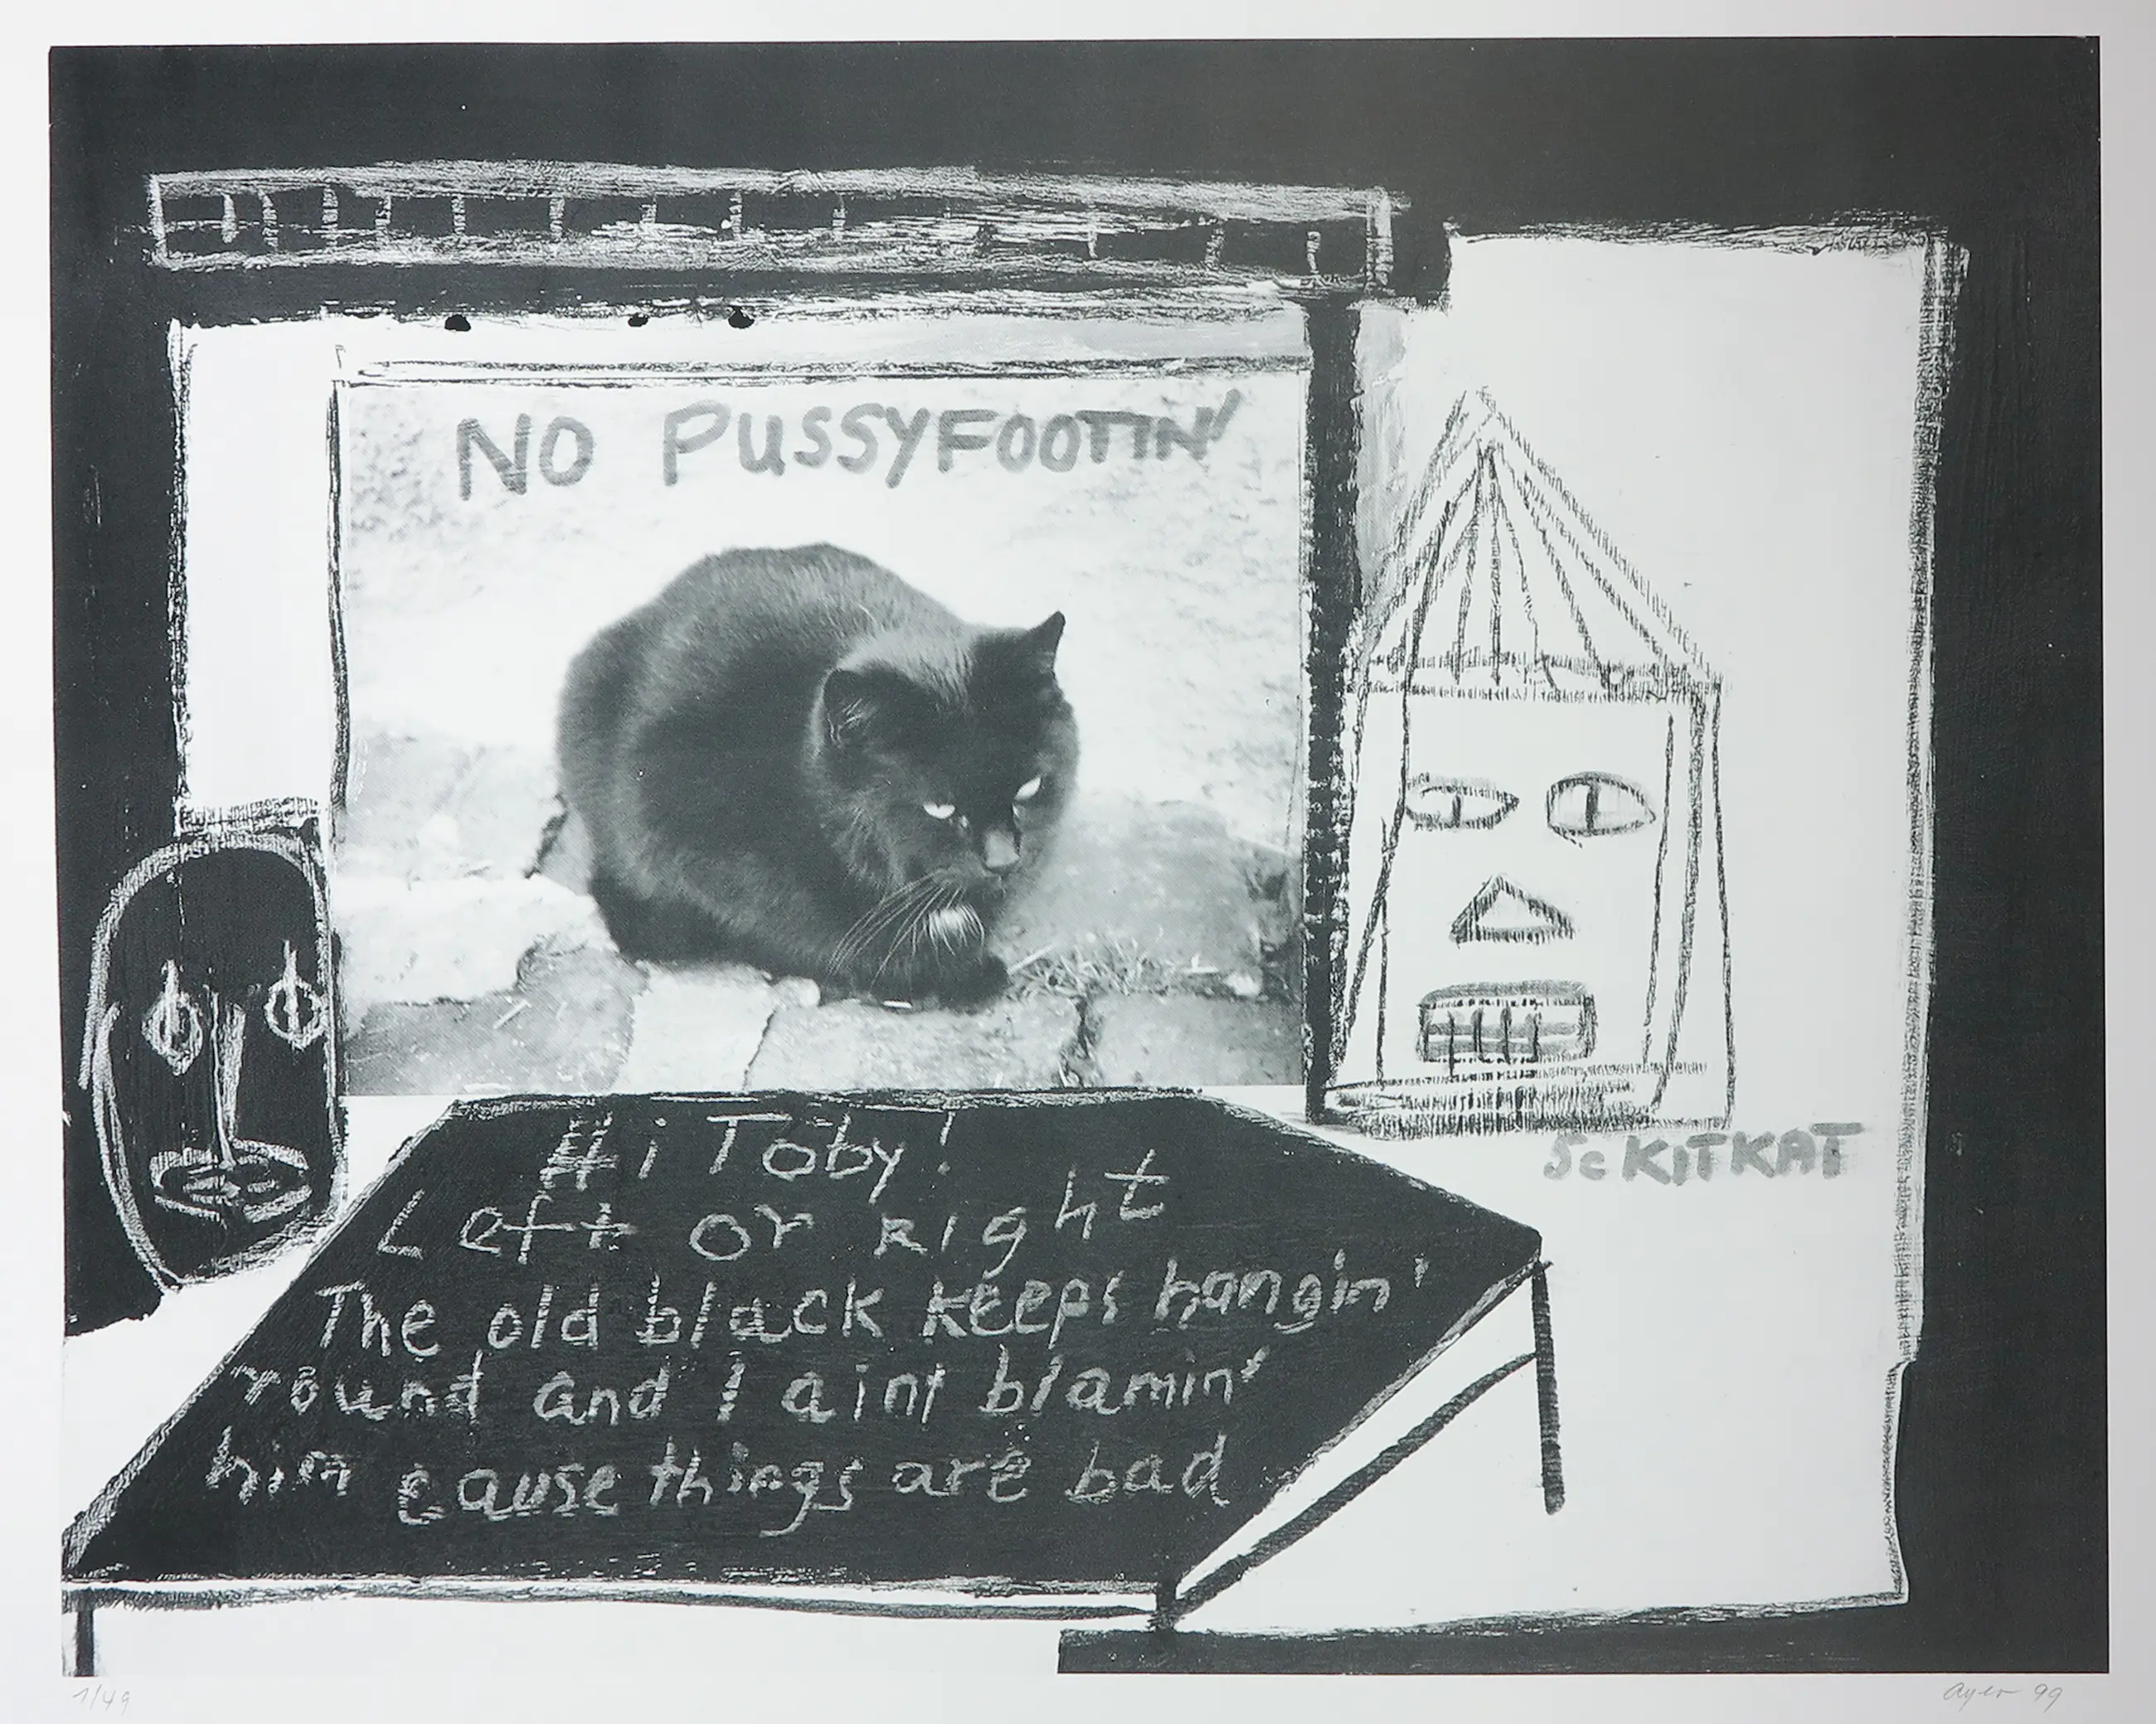 NO PUSSYFOOTIN'
Hi Toby!
Left or Right
The old black keeps hangin'
round and I aint blamin'
him cause things are bad
Sc KITKAT
1/49
Ayer 99